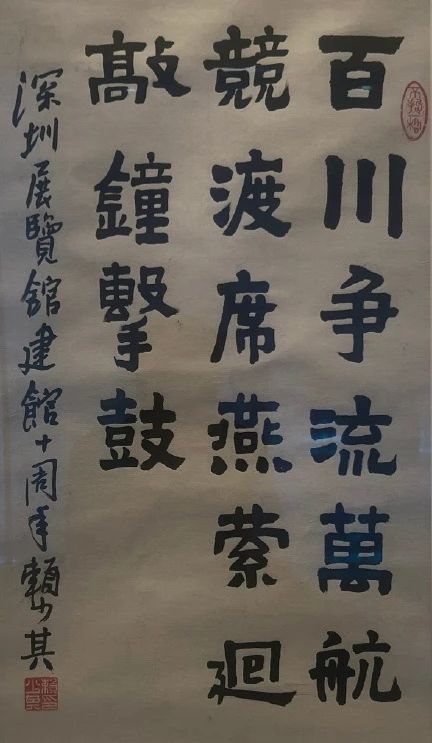 百川争流萬航
競渡席燕萦迴
敲鐘擊鼓
深圳展覽館建館十周年賴少其